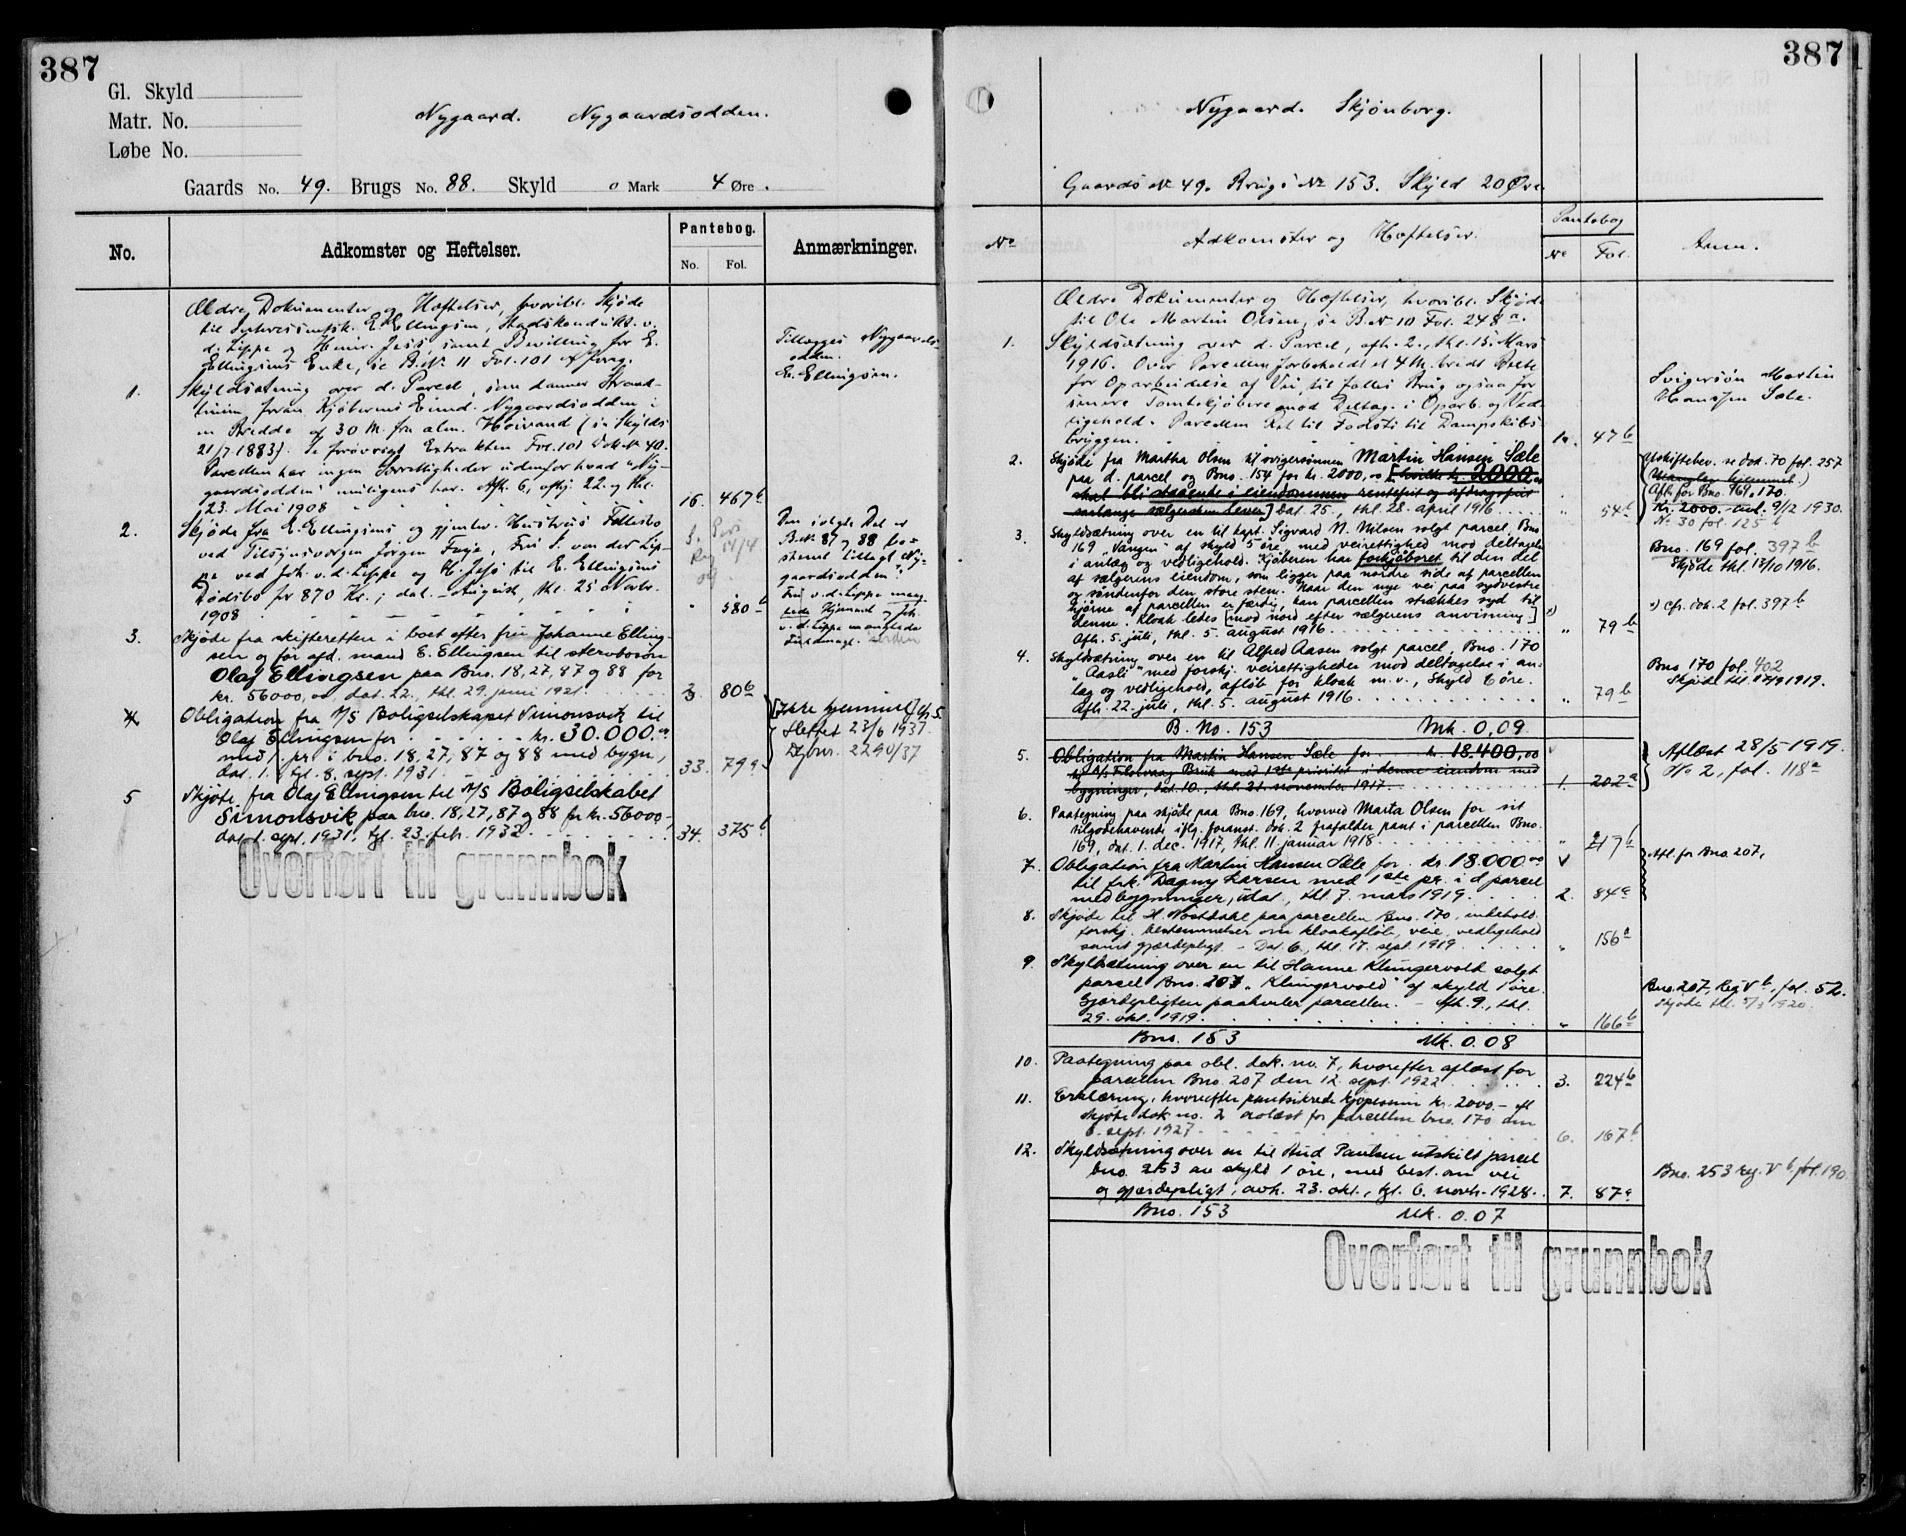 387
Gl. Skyld
Matr. No.
Løbe No.
Nygaard. Nygaardsodden.
Gaards No. 49. Brugs No. 88. Skyld 0 Mark 4 Øre.
No.
Adkomster og Heftelser.
Pantebog.
No. Fol.
Anmærkninger.
Ældre Dokumenter og Hæftelser, hvoribl. Skjøde
til E. Ellingsen, Stadskondukt. v.
d. Lippe og Henr. Jess samt Bevilling for E.
Ellingsens Enke, se B.No 11 Fol. 101
1. Skyldsætning over d. Parcel, som danner Strand-
linien foran Kjøberens Eiend. Nygaardsodden i
en Bredde af 30 M. fra alm. Høivand (se Skylds.
21/7 1883). Se forøvrigt Extrakten Fol. 101 Dok. No 40.
Parcellen har ingen Forrettigheder udenfor hvad "Ny-
gaardsodden" muligens har. Afh. 6, afhj. 22. og thl.
23. Mai 1908 16. 467b
2. Skjøde fra E. Ellingsens og Hustrus Fællesbo
ved Tilsynsværgen Jørgen Faye, Fru S. von der Lip-
pe ved Joh. v. d. Lippe og H. Jess til E. Ellingsens
Dødsbo for 870 Kr.; dat. - August, thl. 25 Novbr.
1908 " 580b
3. Skjøde fra skifteretten i boet efter fru Johanne Elling-
sen og før afd. mand E. Ellingsen til stervbosøn
Olaf Ellingsen paa Bno. 18, 27, 87 og 88 for
kr. 56000,00, dat. 22., thl. 29. juni 1921 3. 80b
4 Obligation fra A/S Boligselskapet Simonsvik til
Olaf Ellingsen for kr. 30.000.00
med 1. pr. i bno. 18, 27, 87 og 88 med bygn.,
dat. 1. tgl. 8. sept. 1931. 33. 79a
5 Skjøte fra Olaf Ellingsen til A/S Boligselskabet
Simonsvik paa bno. 18, 27, 87 og 88 for kr. 56000-
dat. 1. sept. 1931, tgl. 23. feb. 1932 34. 375b
Tillægges Nygaards-
odden.
E. Ellingsen.
Den solgte Del af
B.No 87 og 88 be-
stemt tillagt Ny-
gaardsodden.
Fru v. d. Lippe mang-
lede Hjemmel og Joh.
v. d. Lippe manglede
Fuldmagt.
[Ikke hjemmel]
Slettet 23/6 1937.
Dgbnr. 2290/37
Overført til grunnbok
387
Nygaard. Skjønborg.
Gaards No 49. Brugs No 153. Skyld 20 Øre
No
Adkomster og Hæftelser.
Pantebog
No Fol.
Anm.
Ældre Dokumenter og Hæftelser, hvoribl. Skjøde
til Ole Martin Olsen, se B.No 10 Fol. 248a.
1. Skyldsætning over d. Parcel, afh. 2., thl. 15. Mars
1916. Over Parcellen forbeholdt et 4 M. bredt Belte
for Oparbeidelse af Vei til fælles Brug ogsaa for
senere Tomtekjøbere mod Deltag. i Oparb. og Ved-
ligehold. Parcellen Ret til Fodsti til Dampskibs-
bryggen. 47b
Svigersøn Martin
Hansen Sæle.
2. Skjøde fra Martha Olsen til svigersønnen Martin Hansen Sæle
paa d. parcel og Bno. 154 for kr. 2000,00 [hvilke kr. 2000,00
skal bli staaende i eiendommen rentefrit og afdragsfrit
saalænge sælgersken lever] Dat. 25., thl. 28. april 1916 " 54b
afskiftebev. se dok. 70 fol. 257
Mangler hjemmel.)
Afl. for Bno. 169, 170.
Kr. 2000.- avl. 9/12 1930.
No 30 fol. 125b
3. Skyldsætning over en til kapt. Sigvard N. Nilsen solgt parcel, Bno
169 "Vangen" af skyld 5 øre, med veirettighed mod deltagelse
i anlæg og vedligehold. Kjøberen har forkjøbsret til den del
af sælgerens eiendom, som ligger paa nordre side af parcellen
og søndenfor den store sten. Naar den nye vei paa sydvestre
hjørne af parcellen er færdig, kan parcellen strækkes syd til
denne. Kloak ledes [mod nord efter sælgerens anvisning]
Afh. 5. juli, thl. 5. august 1916 " 79b
Bno. 169 fol. 397b
Skjøde thl. 13/10 1916.
cfr. dok. 2 fol. 397b
4. Skyldsætning over en til Alfred Aasen solgt parcel, Bno. 170
"Aasli" med forskj. veirettigheder mod deltagelse i an-
læg og vedligehold, afløb for kloak m.v., Skyld 6 øre.
Afh. 22. juli, thl. 5. august 1916 " 79b
Bno 170 fol. 402
Skjøde thl. 17/9 1919.
B. No. 153 Mrk. 0,09
5. Obligation fra Martin Hansen Sæle for kr. 18.400,00
til A/S Florvaag Bruk med 1ste prioritet i denne eiendom med
bygninger, dat. 10., thl. 21. november 1917 1. 202a
Aflæst 28/5 1919.
No 2, fol. 118a
6. Paategning paa skjøde paa Bno. 169, hvorved Marta Olsen for sit
tilgodehavende iflg. foranst. dok. 2 frafalder pant i parcellen Bno.
169, dat. 1. dec. 1917, thl. 11 januar 1918 " 217b
7. Obligation fra Martin Hansen Sæle for kr. 18.000.00
til frk. Dagny Larsen med 1ste pr. i d parcel
med bygninger, udat., thl. 7. mars 1919 2. 84a
Afl. for Bno. 207.
8. Skjøde til H. Nøstdahl paa parcellen Bno. 170, indehold.
forskj. bestemmelser om kloakafløb, veie, vedligehold
samt gjærdepligt. - Dat. 6., thl. 17. sept. 1919 " 156a
9. Skyldsætning over en til Hanne Klingervold solgt
parcel Bno. 207 "Klingervold" af skyld 1 øre.
Gjærdepligten paahviler parcellen. - Afh. 9., thl.
29. okt. 1919 " 166b
Bno. 207, Reg. Vb, fol. 52.
Skjøde thl. 1920.
Bno. 153 Mk. 0.08
10. Paategning paa obl. dok. no. 7, hvorefter aflæst for
parcellen Bno. 207 den 12. sept. 1922 3. 224b
11. Erklæring, hvorefter pantsikrede kjøpesum kr. 2000.- efl
skjøte dok no. 2 avlæst for parcellen bno. 170 den
6. sept. 1927 6. 167b
12. Skyldsætning over en til Aud Paulsen utskilt parcel
bno. 253 av skyld 1 øre, med best. om vei
og gjærdepligt, avh. 23. okt., tgl. 6. novb. 1928 7. 87a
Bno. 253 reg. Vb, fol. 190
Bno. 153 Mk. 0.07
Overført til grunnbok